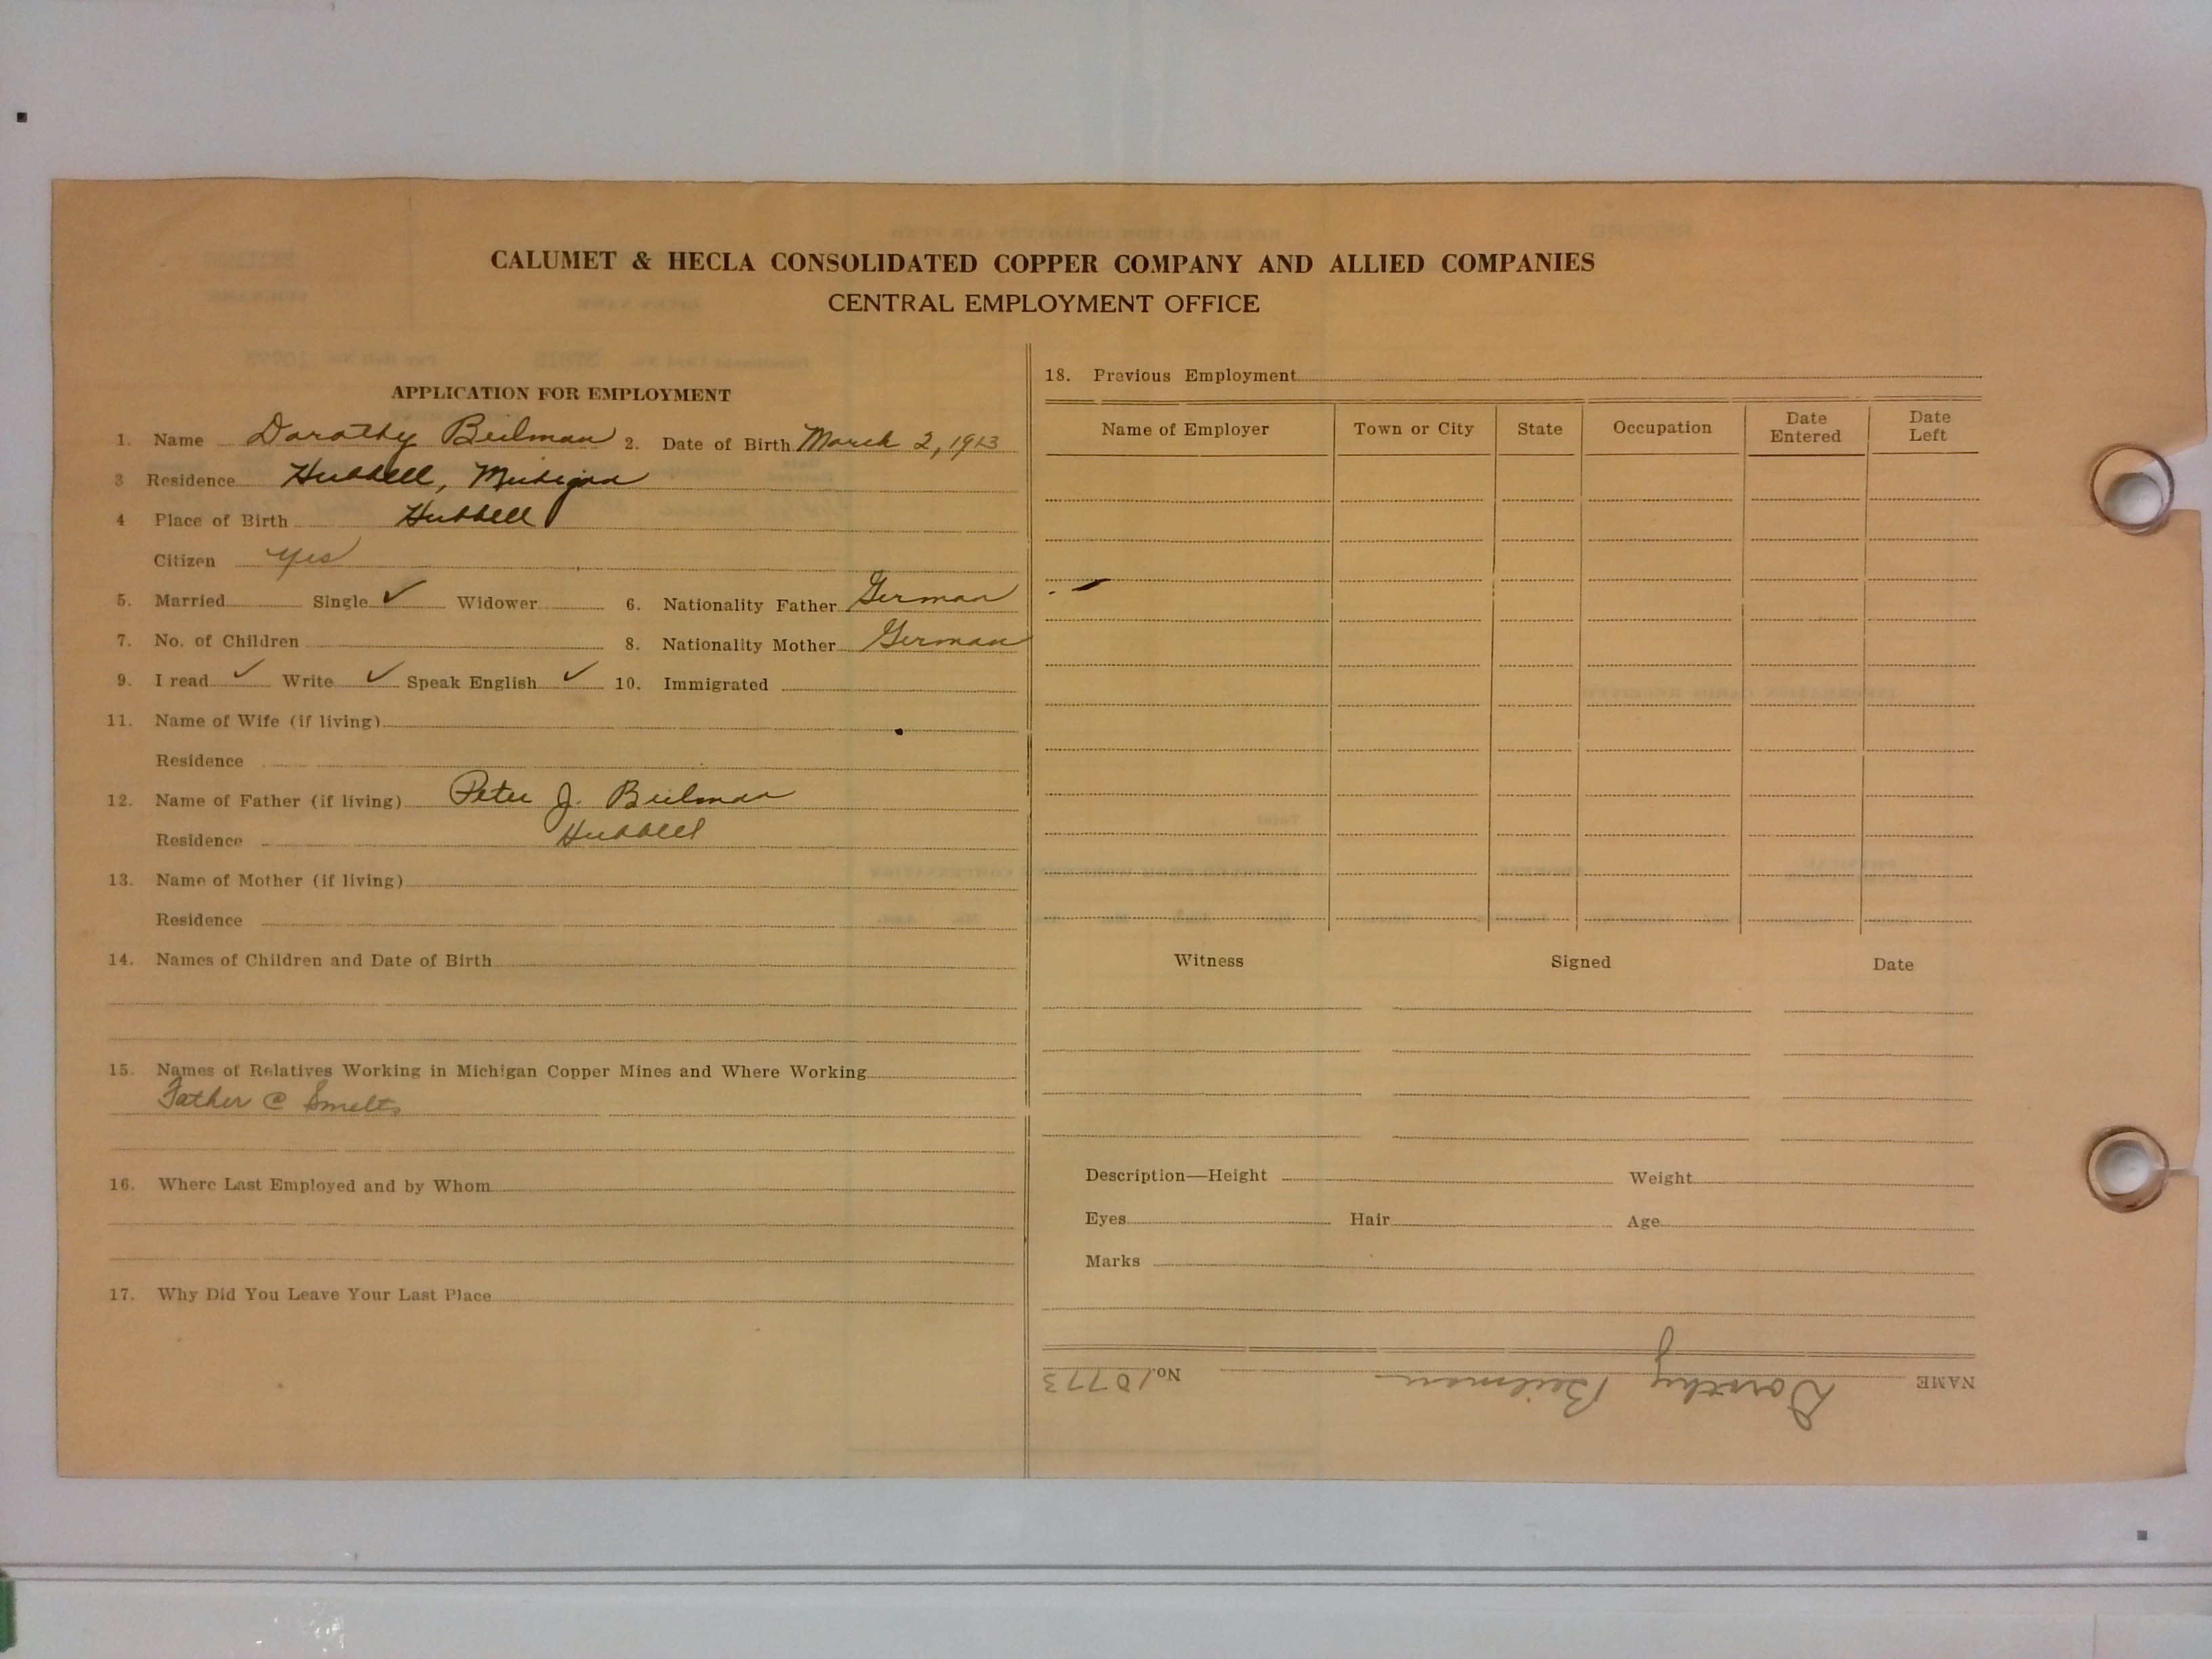 CALUMET & HECLA CONSOLIDATED COPPER COMPANY AND ALLIED COMPANIES
CENTRAL EMPLOYMENT OFFICE
APPLICATION FOR EMPLOYMENT
1. Name Dorothy Beilman 2. Date of Birth March 2, 1913
3 Residence Hubbell, Michigan
4 Place of Birth Hubbell
Citizen yes
5. Married Single ✓ Widower 6. Nationality Father German
7. No. of Children 8. Nationality Mother German
9. I read ✓ Write ✓ Speak English ✓ 10. Immigrated
11. Name of Wife (if living)
Residence
12. Name of Father (if living) Peter J. Beilman
Residence Hubbell
13. Name of Mother (if living)
Residence
14. Names of Children and Date of Birth
15. Names of Relatives Working in Michigan Copper Mines and Where Working
Father @ Smelts
16. Where Last Employed and by Whom
17. Why Did You Leave Your Last Place
18. Previous Employment
Name of Employer Town or City State Occupation Date Entered Date Left
Witness Signed Date
Description—Height Weight
Eyes Hair Age
Marks
NAME Dorothy Beilman No. 10773